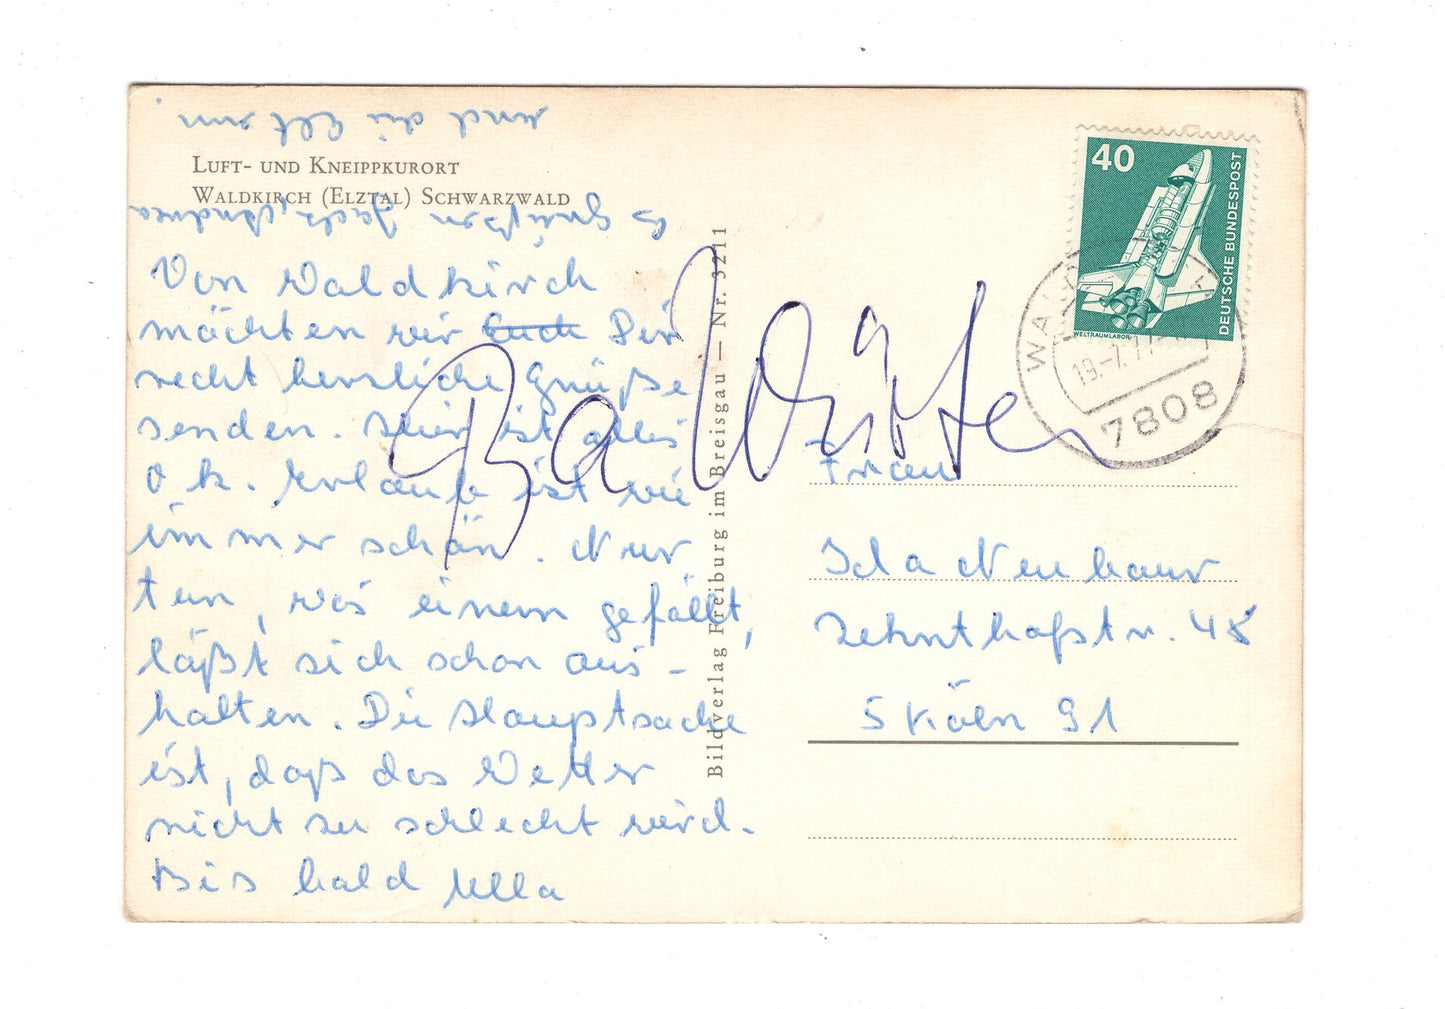 LUFT- UND KNEIPPKURORT
WALDKIRCH (ELZTAL) SCHWARZWALD
Von Waldkirch
möchten wir Euch Dir
recht herzliche Grüße
senden. Hier ist alles
o.k. Urlaub ist wie
immer schön. Nur
tun, was einem gefällt,
läßt sich schon aus-
halten. Die Hauptsache
ist, daß das Wetter
nicht zu schlecht wird.
Bis bald Ulla
Es grüßen Andrea
und die
Bildverlag Freiburg im Breisgau — Nr. 3211
40
DEUTSCHE BUNDESPOST
WELTRAUMLABOR
7808
Frau
Ida Neubaur
Zehnthofstr. 48
5 Köln 91